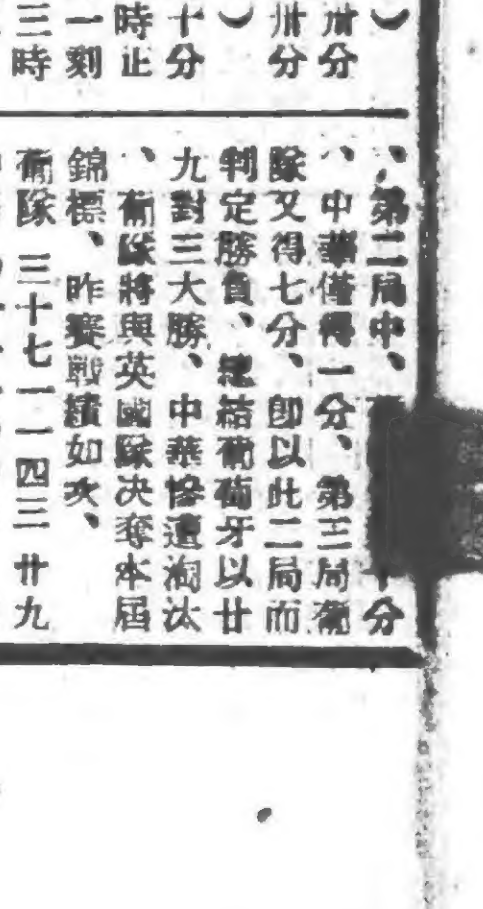 ）
卅分
卅分
）
十分
時止
一刻
三時
、第二局中、
十分
、中華僅得一分、第三局葡
隊又得七分、即以此二局而
判定勝負、總結葡萄牙以廿
九對三大勝、中華慘遭淘汰
、葡隊將與英國隊决奪本屆
錦標、昨賽戰績如次、
葡隊 三十七一一四三 廿九